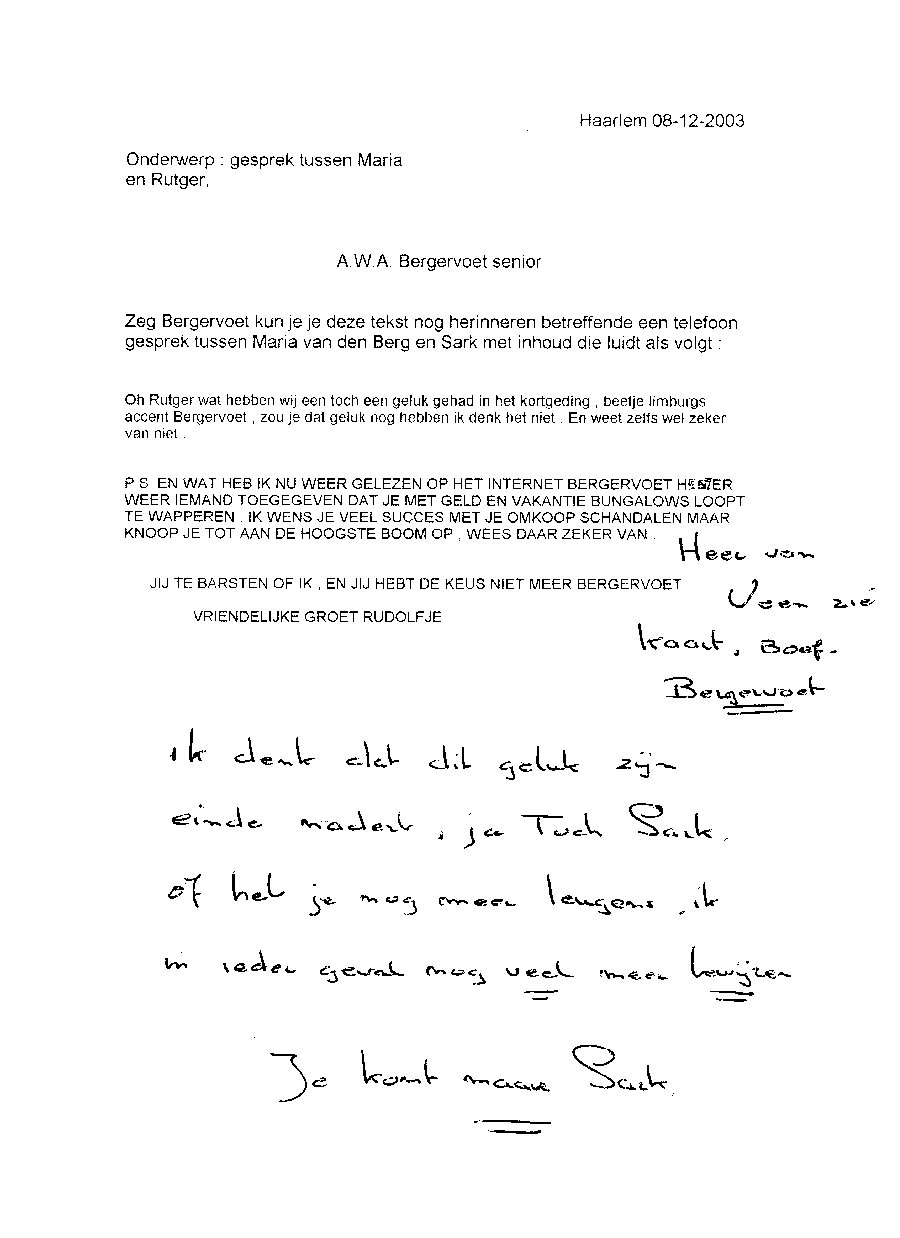 Haarlem 08-12-2003
Onderwerp : gesprek tussen Maria
en Rutger,
A.W.A. Bergervoet senior
Zeg Bergervoet kun je je deze tekst nog herinneren betreffende een telefoon
gesprek tussen Maria van den Berg en Sark met inhoud die luidt als volgt :
Oh Rutger wat hebben wij een toch een geluk gehad in het kortgeding , beetje limburgs
accent Bergervoet , zou je dat geluk nog hebben ik denk het niet . En weet zelfs wel zeker
van niet .
P S EN WAT HEB IK NU WEER GELEZEN OP HET INTERNET BERGERVOET
WEER IEMAND TOEGEGEVEN DAT JE MET GELD EN VAKANTIE BUNGALOWS LOOPT
TE WAPPEREN . IK WENS JE VEEL SUCCES MET JE OMKOOP SCHANDALEN MAAR
KNOOP JE TOT AAN DE HOOGSTE BOOM OP , WEES DAAR ZEKER VAN .
Heer van
JIJ TE BARSTEN OF IK , EN JIJ HEBT DE KEUS NIET MEER BERGERVOET
Veen zie
VRIENDELIJKE GROET RUDOLFJE
kaart, Boef.
Bergervoet
ik denk dat dit geluk zijn
einde nadert, ja Toch Sark.
of heb je nog meer leugens, ik
in ieder geval nog veel meer bewijzen
Je komt maar Sark.